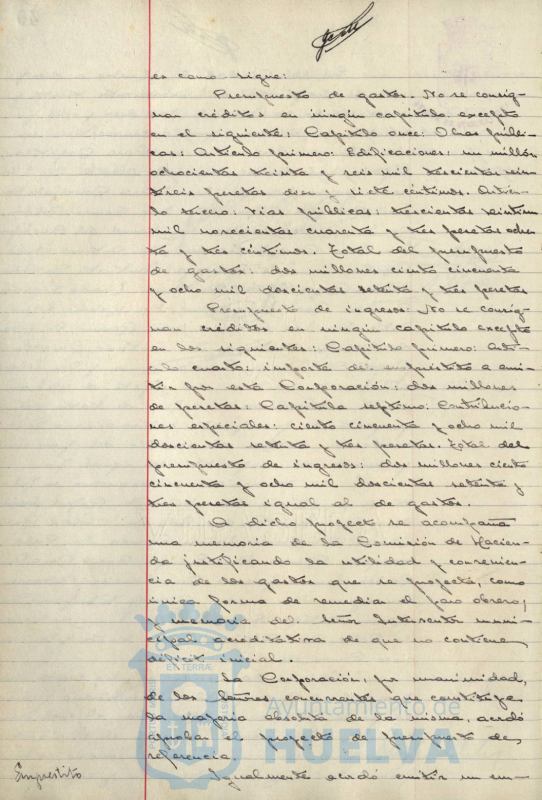 es como sigue:
Presupuesto de gastos. No se consig-
nan créditos en ningún capítulo excepto
en el siguiente: Capítulo once: Obras públi-
cas: Artículo primero: Edificaciones: un millón
ochocientas treinta y seis mil trescientas vein
tiseis pesetas diez y siete céntimos. Artícu-
lo tercero: Vías públicas: trescientas veintiun
mil novecientas cuarenta y tres pesetas ochen
ta y tres céntimos. Total del presupuesto
de gastos: dos millones ciento cincuenta
y ocho mil doscientas setenta y tres pesetas
Presupuesto de ingresos: No se consig-
nan créditos en ningún capítulo excepto
en los siguientes: Capítulo primero: Artí-
culo cuarto: importe del empréstito a emi-
tir por esta Corporación: dos millones
de pesetas: Capítulo séptimo: Contribucio-
nes especiales: ciento cincuenta y ocho mil
doscientas setenta y tres pesetas. Total del
presupuesto de ingresos: dos millones ciento
cincuenta y ocho mil doscientas setenta y
tres pesetas igual al de gastos.
A dicho proyecto se acompaña
una memoria de la Comisión de Hacien-
da justificando la utilidad y convenien-
cia de los gastos que se proyecta, como
única forma de remediar el paro obrero,
y memoria del Señor Interventor muni-
cipal acreditativa de que no contiene
déficit inicial.
La Corporación, por unanimidad,
de los Señores concurrentes que constituye
la mayoría absoluta de la misma, acordó
aprobar el proyecto de presupuesto de
referencia.
Empréstito
Igualmente acordó emitir un em-
Ayuntamiento de
HUELVA